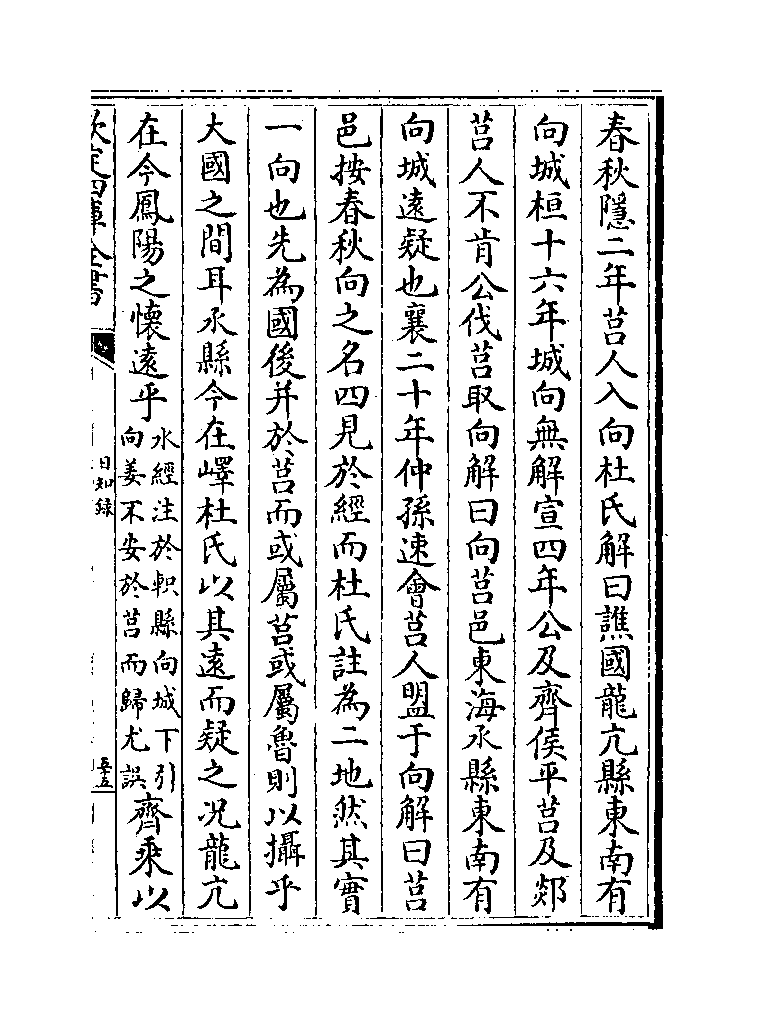 春秋隱二年莒人入向杜氏解曰譙國龍亢縣東南有
向城桓十六年城向無解宣四年公及齊侯平莒及郯
莒人不肯公伐莒取向解曰向莒邑東海氶縣東南有
向城逺疑也襄二十年仲孫速會莒人盟于向解曰莒
邑按春秋向之名四見於經而杜氏註為二地然其實
一向也先為國後并於莒而或屬莒或屬魯則以攝乎
大國之間耳氶縣今在嶧杜氏以其逺而疑之况龍亢
在今鳳陽之懐逺乎
水經注於軹縣向城下引
向姜不安於莒而歸尤誤
齊乘以
欽定四庫全書
日知錄